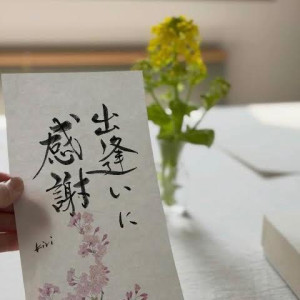 出逢いに
感謝
kiri